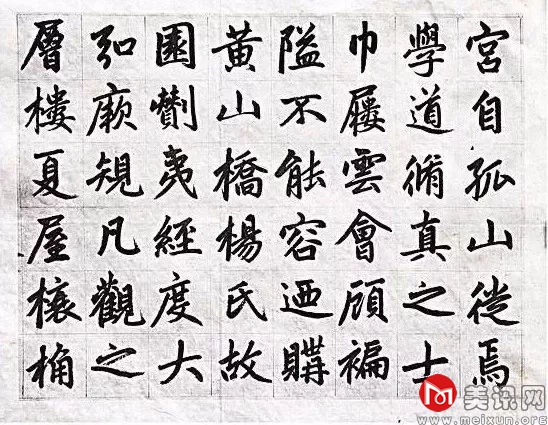 宮自孤山徙焉
學道脩真之士
巾屨雲會顧褊
隘不能容迺購
黃山橋楊氏故
園劗夷經度大
弘厥規凡觀之
層樓夏屋榱桷
美讯网
www.meixun.org